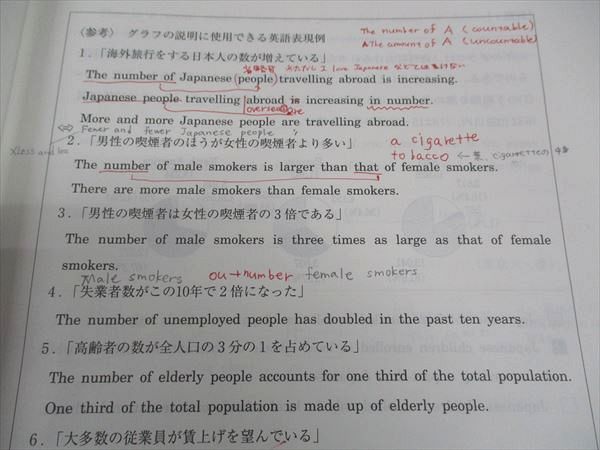 〈参考〉 グラフの説明に使用できる英語表現例
The number of A (countable)
The amount of A (uncountable)
1.「海外旅行をする日本人の数が増えている」
The number of Japanese (people) travelling abroad is increasing.
Japanese people travelling abroad is increasing in number.
overseas are
More and more Japanese people are travelling abroad.
Fewer and fewer Japanese people
Xless and less
2.「男性の喫煙者のほうが女性の喫煙者より多い」
a cigarette
tobacco
The number of male smokers is larger than that of female smokers.
There are more male smokers than female smokers.
3.「男性の喫煙者は女性の喫煙者の3倍である」
The number of male smokers is three times as large as that of female
smokers.
Male smokers outnumber female smokers
4.「失業者数がこの10年で2倍になった」
The number of unemployed people has doubled in the past ten years.
5.「高齢者の数が全人口の3分の1を占めている」
The number of elderly people accounts for one third of the total population.
One third of the total population is made up of elderly people.
6.「大多数の従業員が賃上げを望んでいる」